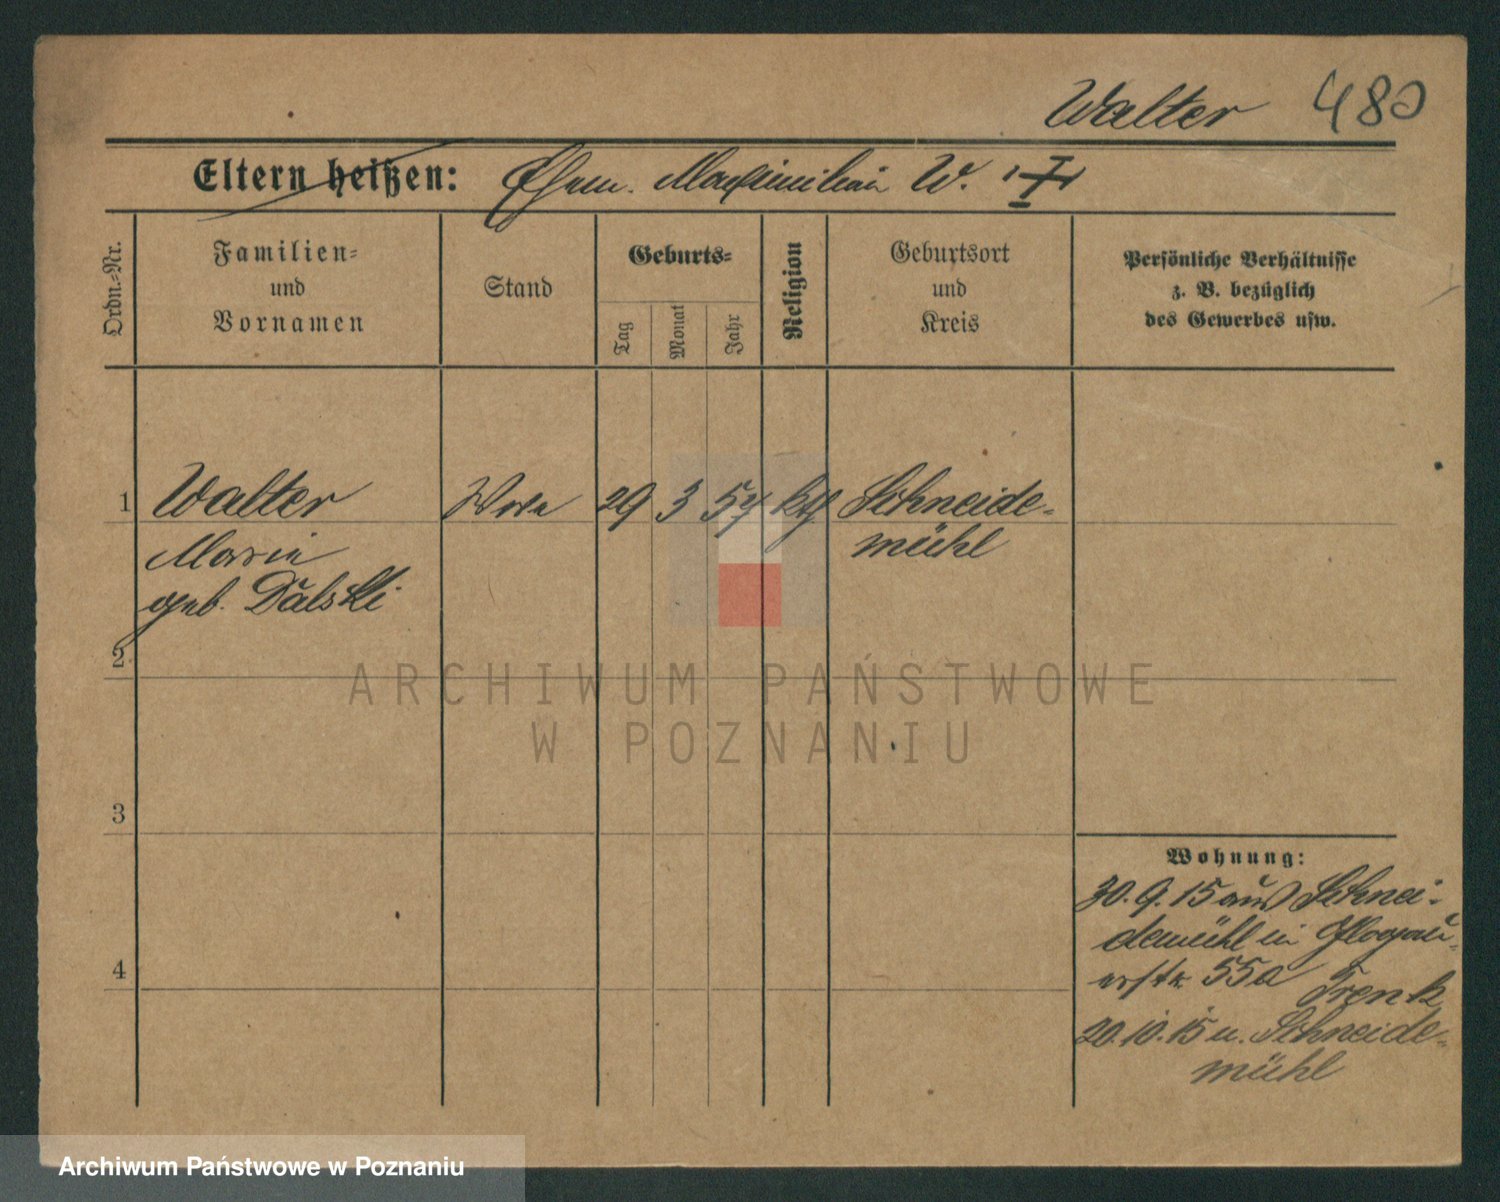 Walter 480
Eltern heißen: Ehem. Maximilian W.
Ordn.-Nr.
Familien-
und
Vornamen
Stand
Geburts-
Tag
Monat
Jahr
Religion
Geburtsort
und
Kreis
Persönliche Verhältnisse
z. B. bezüglich
des Gewerbes usw.
1 Walter Wwe 29 3 54 kth Schneide-
mühl
Marie
geb. Dalski
2
3
4
Wohnung:
30.9.15 aus Schnei-
demühl in Glogau-
erstr. 55a
Trenk
20.10.15 n. Schneide-
mühl
ARCHIWUM PAŃSTWOWE
W POZNANIU
Archiwum Państwowe w Poznaniu